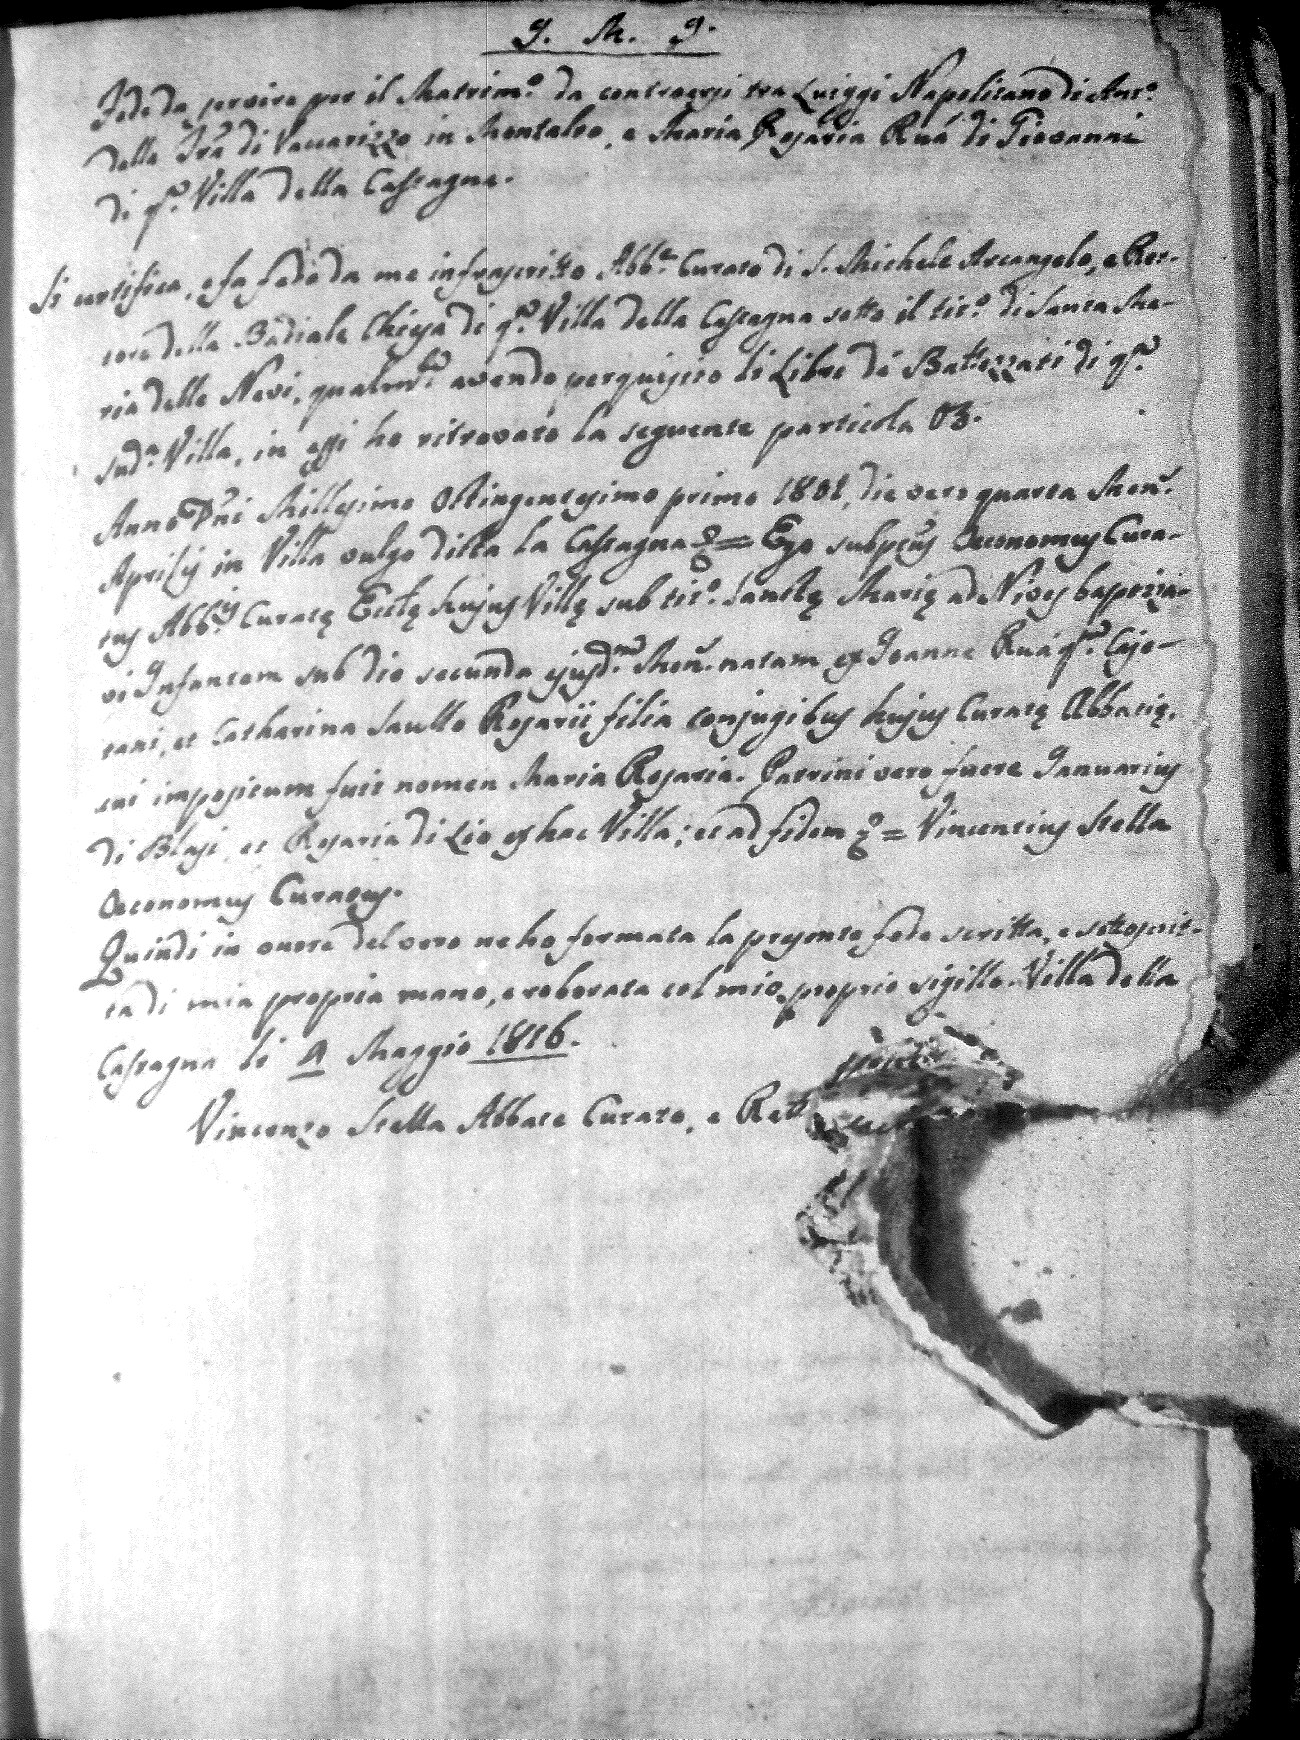 J. M. J.
Fede da servire per il Matrim.º da contraersi tra Luiggi Napolitano di Ant.º
della Trã di Vaccarizzo in Montalto, e Maria Rosaria Ruá di Giovanni
di q.ª Villa della Castagna.
Si certifica, e fa fede da me infrascritto Abb.e Curato di S. Michele Arcangelo, e Ret-
tore della Badiale Chiesa di q.ª Villa della Castagna sotto il tit.º di Santa Ma-
ria delle Nevi, qualm.te avendo perquisito li Libri dé Battezzati di q.ª
sud.ª Villa, in essi ho ritrovato la seguente particola
Anno Dñi Millesimo Octingentesimo primo 1801, die vero quarta Meñ.
Aprilis in Villa vulgo dicta la Castagna = Ego subptus Oeconomus Cura-
tus Abb.is Curatę Ecclę hujus Villę sub tit.º Sanctę Marię ad Nives baptiza-
vi Infantem sub die secunda ejusd.m Meñ. natam ex Joanne Ruá q.m Caje-
tani, et Catharina Saullo Rosarii filia conjugibus hujus Curatę Abbatię,
cui impositum fuit nomen Maria Rosaria. Patrini vero fuere Januarius
di Blasi, et Rosaria di Lio ex hac Villa; et ad fidem = Vincentius Stella
Oeconomus Curatus.
Quindi in onore del vero ne ho formata la presente fede scritta, e sottoscrit-
ta di mia propria mano, e roborata col mio proprio sigillo. Villa della
Castagna li 4 Maggio 1816.
Vincenzo Stella Abbate Curato, e Rett